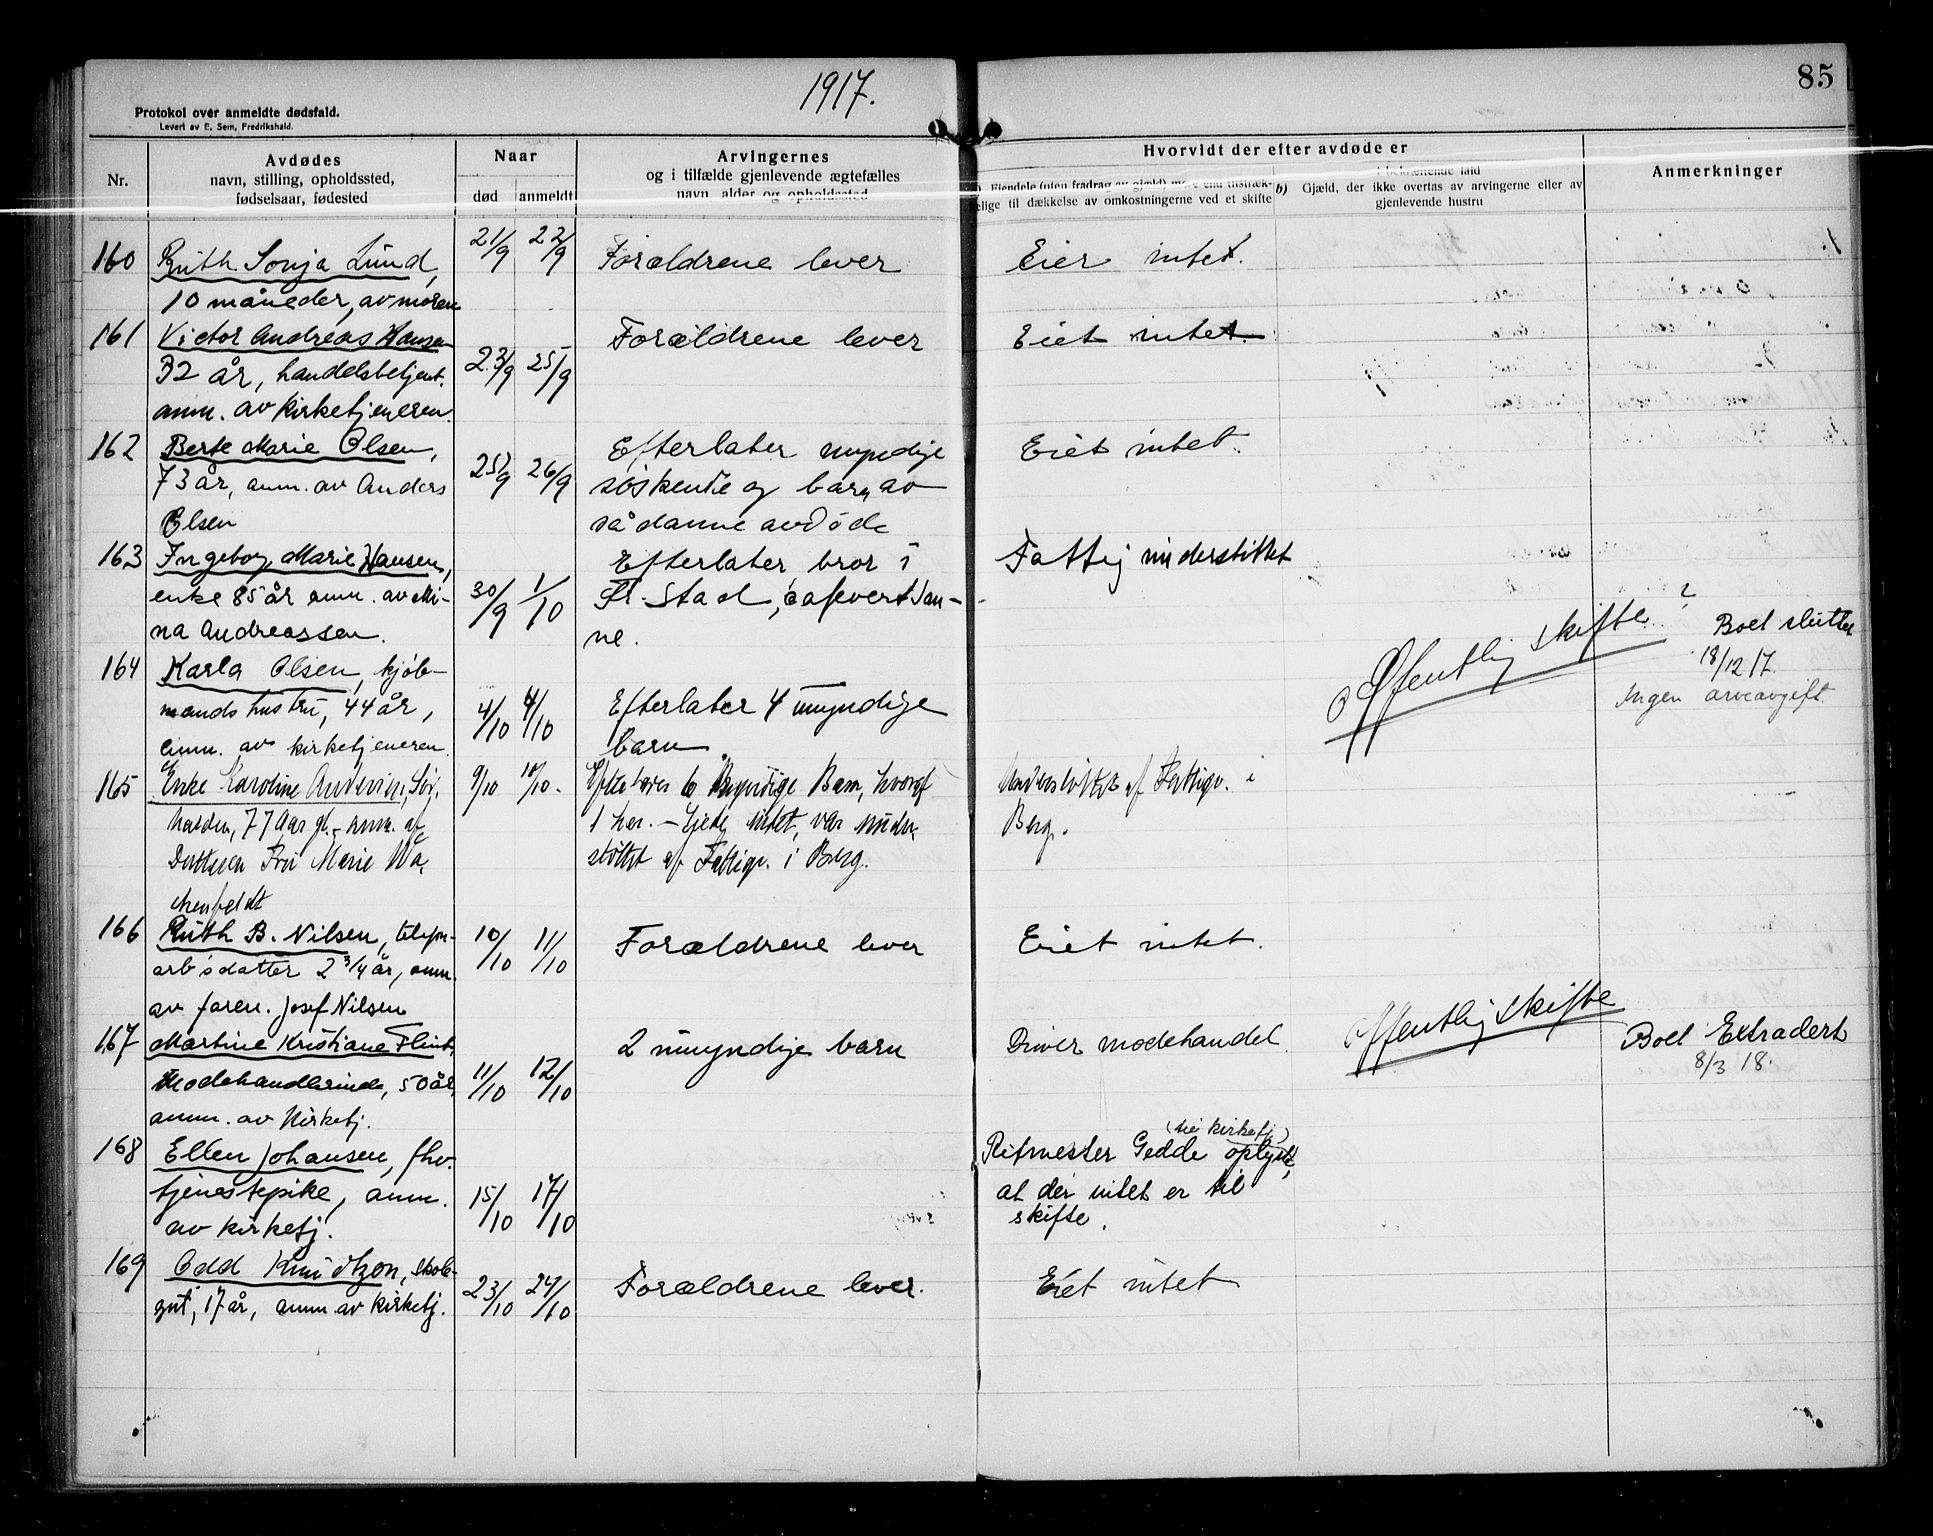 1917.
85
Protokol over anmeldte dødsfald.
Levert av E. Sem, Fredrikshald.
Nr.
Avdødes
navn, stilling, opholdssted,
fødselsaar, fødested
Naar
død
anmeldt
Arvingernes
og i tilfælde gjenlevende ægtefælles
navn, alder og opholdssted
Hvorvidt der efter avdøde er
a) Eiendele (uten fradrag av gjæld) mere end tilstræk-
kelige til dækkelse av omkostningerne ved et skifte
i bekræftende fald
b) Gjæld, der ikke overtas av arvingerne eller av
gjenlevende hustru
Anmerkninger
160 Ruth Sonja Lund, 21/9 22/9 Forældrene lever Eier intet.
10 måneder, av moren
161 Victor Andreas Hansen Forældrene lever Eiet intet.
32 år, handelsbetjent. 23/9 25/9
anm. av Kirketjeneren.
162 Berte Marie Olsen, Efterlater myndige Eiet intet.
73 år, anm. av Anders 25/9 26/9 søskende og barn av
Olsen sådanne avdøde
163 Ingeborg Marie Hansen, Efterlater bror i Fattigunderstøttet
enke 85 år anm. av Mi- 30/9 1/10 Fr.stad,
na Andreassen. ne.
164 Karla Olsen, kjøb- Offentlig skifte ? Boet sluttet
18/12 17.
mands hustru, 44 år, 4/10 4/10 Efterlater 4 umyndige Ingen arveavgift.
anm. av kirketjeneren. barn.
165 Enke Karoline 9/10 10/10. Efterlader 6 myndige Barn, hvoraf Understøttet af Fattigv. i
77 Aar gl. - anm. af 1 her. - Ejede intet, var under- Berg.
Datteren Fru Marie Wa- støttet af Fattigv. i Berg.
166 Ruth B. Nilsen, 10/10 11/10 Forældrene lever Eiet intet.
arb.sdatter 2 3/4 år, anm.
av faren. Josef Nilsen
167 Martine Kristiane Flint, 2 umyndige barn Driver modehandel. Offentlig skifte Boet Extradert
8/3 18.
Modehandlerinde, 50 år, 11/10 12/10
anm. av Kirketj.
168 Ellen Johansen, fhv. Ritmester Gedde (til kirketj) oplyste,
tjenestepike, anm. 15/10 17/10 at der intet er til
av kirketj. skifte.
169 Odd Knudtzon, skole-
gut, 17 år, anm. av kirketj. 23/10 24/10 Forældrene lever. Eiet intet